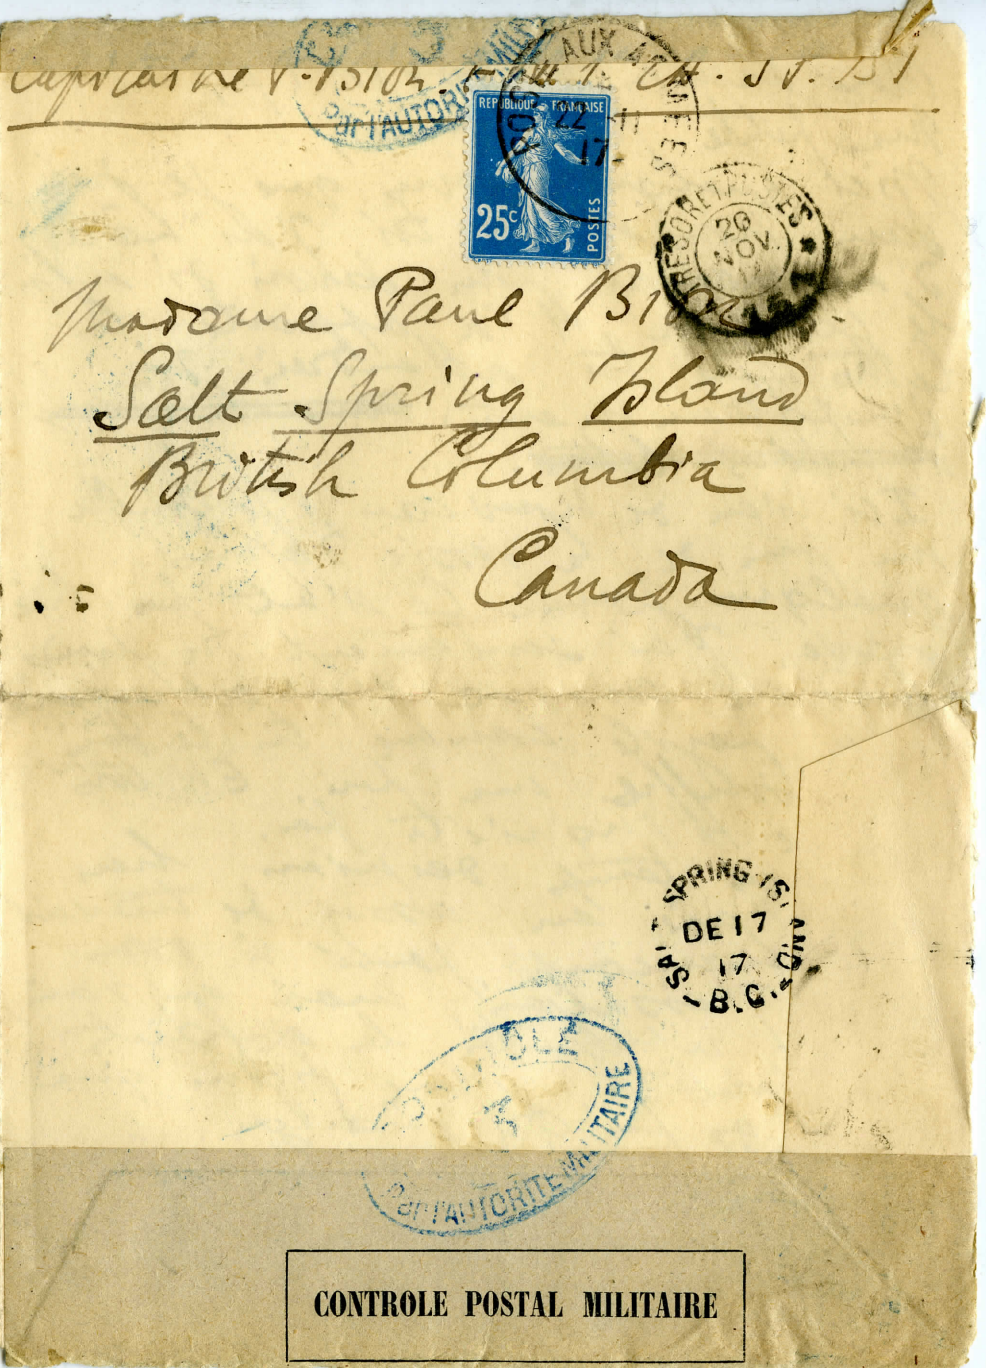 Capitaine P. Bion.
Par l'AUTORITE MILIT
POSTE AUX ARMEES
22 -11
17-
REPUBLIQUE FRANÇAISE
25c
POSTES
TRESOR ET POSTES
20
NOV.
17
Madame Paul Bion
Salt Spring Island
British Columbia
Canada
SALT SPRING ISLAND
DE 17
17
B.C.
CONTROLE
Par l'AUTORITE MILITAIRE
CONTROLE POSTAL MILITAIRE